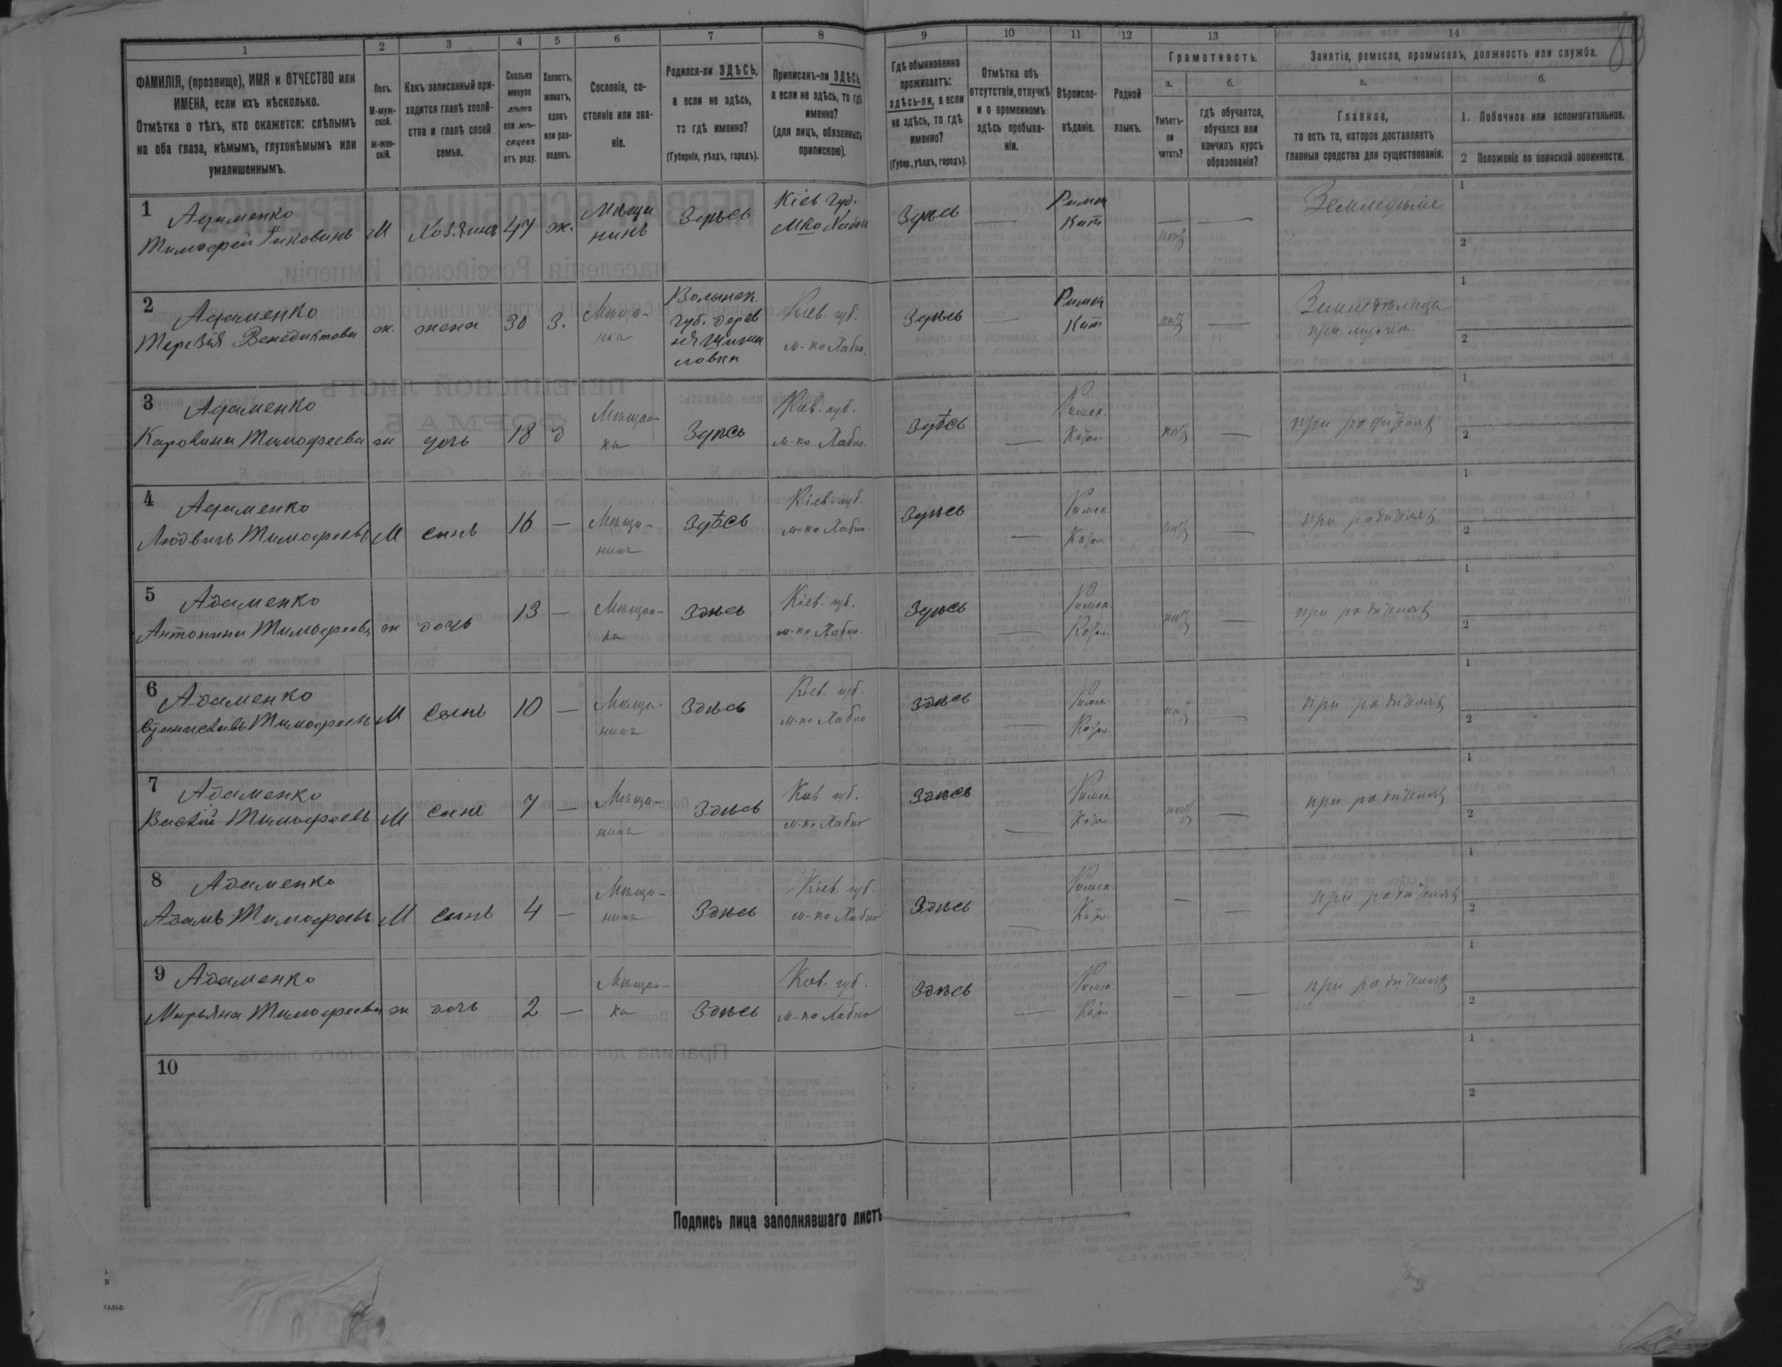 1 2 3 4 5 6 7 8 9 10 11 12 13 14
ФАМИЛІЯ, (прозвище), ИМЯ и ОТЧЕСТВО или
ИМЕНА, если ихъ нѣсколько.
Отмѣтка о тѣхъ, кто окажется: слѣпымъ
на оба глаза, нѣмымъ, глухонѣмымъ или
умалишеннымъ.
Полъ.
М-муж-
ской.
Ж-жен-
скій.
Какъ записанный при-
ходится главѣ хозяй-
ства и главѣ своей
семьи.
Сколько
минуло
лѣтъ
или мѣ-
сяцевъ
отъ роду.
Холостъ,
женатъ,
вдовъ
или раз-
веденъ.
Сословіе, со-
стояніе или зва-
ніе.
Родился-ли ЗДѢСЬ,
а если не здѣсь,
то гдѣ именно?
(Губернія, уѣздъ, городъ).
Приписанъ-ли ЗДѢСЬ,
а если не здѣсь, то гдѣ
именно?
(для лицъ, обязанныхъ
припискою).
Гдѣ обыкновенно
проживаетъ:
здѣсь-ли, а если
не здѣсь, то гдѣ
именно?
(Губер., уѣздъ, городъ).
Отмѣтка объ
отсутствіи, отлучкѣ
и о временномъ
здѣсь пребыва-
ніи.
Вѣроиспо-
вѣданіе.
Родной
языкъ.
Грамотность.
а.
Умѣетъ-
ли
читать?
б.
гдѣ обучается,
обучался или
кончилъ курсъ
образованія?
Занятіе, ремесло, промыселъ, должность или служба.
а.
Главное,
то есть то, которое доставляетъ
главныя средства для существованія.
б.
1. Побочное или вспомогательное.
2 Положеніе по воинской повинности.
1 Адаменко
Тимофей М Хозяинъ 47 ж. Мѣща
нинъ Здѣсь Кіев губ. Здѣсь — Римск
Кат нѣтъ —
1
2
2 Адаменко
Терезія Венедиктова ж. жена 30 З. Мѣща-
нка Волынск.
губ. дерев
ня
Кіев. губ. Здѣсь — Римск
Кат нѣтъ —
1
2
3 Адаменко
Каролина Тимофеева ж дочь 18 д Мѣщан-
ка Здѣсь Кіев. губ. Здѣсь — Римск.
Катол. нѣтъ — при родителях
1
2
4 Адаменко
Людвигъ Тимофеевъ М сынъ 16 — Мѣща-
нинъ Здѣсь Кіев. губ. Здѣсь — Римск.
Катол. нѣтъ — при родителях
1
2
5 Адаменко
Антонина Тимофеева ж дочь 13 — Мѣщан-
ка Здѣсь Кіев. губ. Здѣсь — Римск.
Катол. нѣтъ — при родителях
1
2
6 Адаменко
Станиславъ Тимофеевъ М Сынъ 10 — Мѣща-
нинъ Здѣсь Кіев. губ. Здѣсь — Римск.
Катол. нѣтъ — при родителях
1
2
7 Адаменко
Тимофеевъ М сынъ 7 — Мѣща-
нинъ Здѣсь Кіев. губ. Здѣсь — Римск.
Катол. нѣтъ — при родителях
1
2
8 Адаменко
Адамъ Тимофеевъ М сынъ 4 — Мѣща-
нинъ Здѣсь Кіев. губ. Здѣсь — Римск.
Катол. — — при родителях
1
2
9 Адаменко
Марьяна Тимофеева ж дочь 2 — Мѣщан-
ка Здѣсь Кіев. губ. Здѣсь — Римск.
Катол. — — при родителях
1
2
10
1
2
Подпись лица заполнявшаго листъ